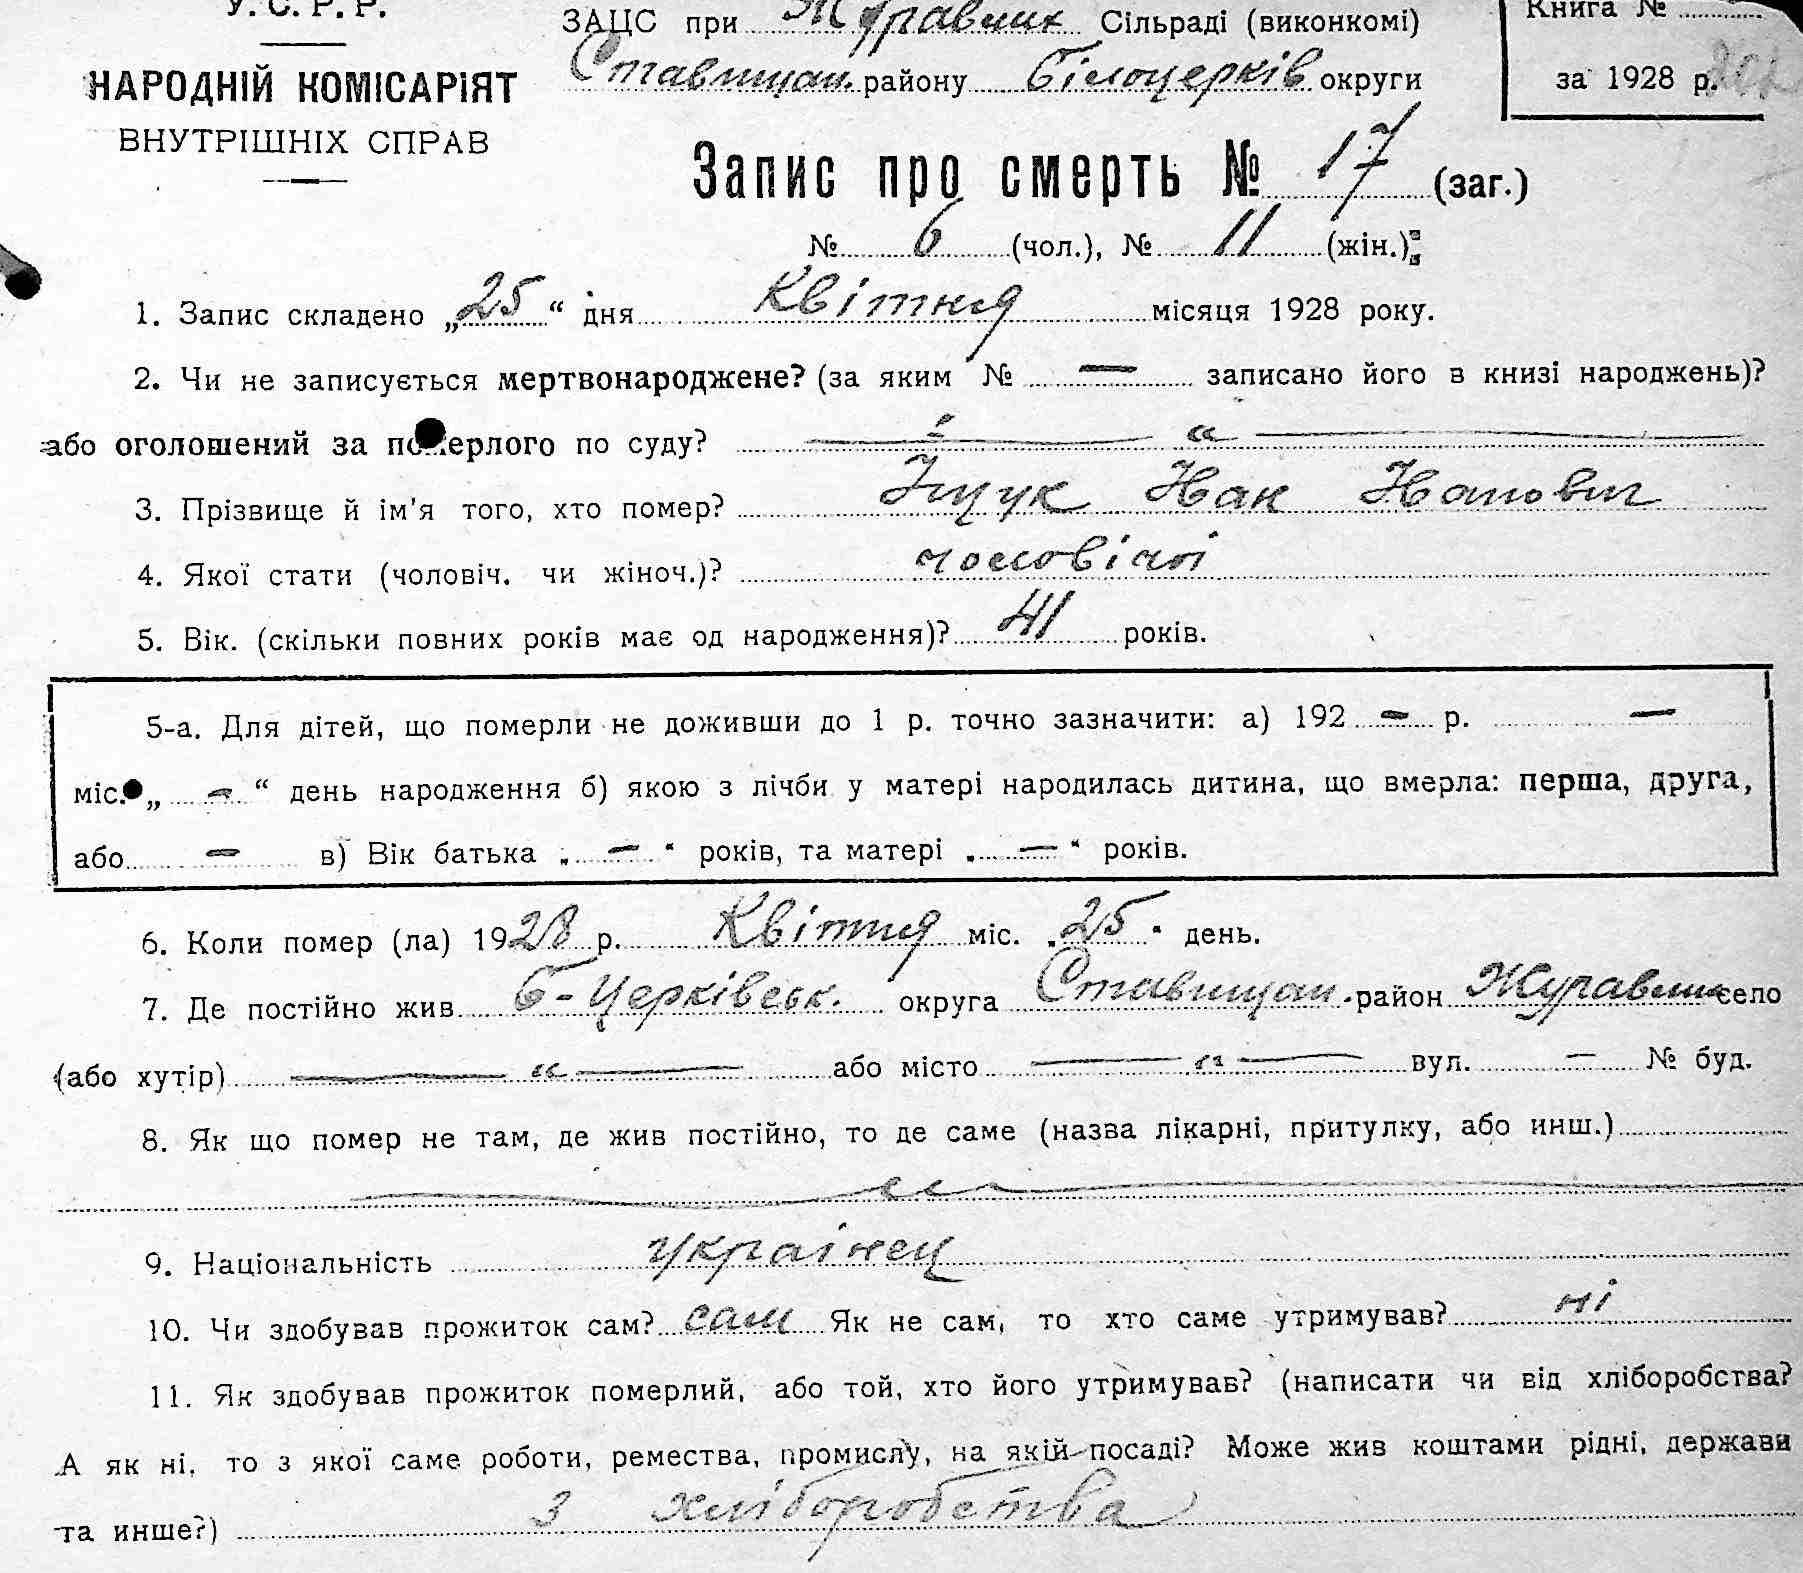 У. С. Р. Р.
НАРОДНІЙ КОМІСАРІЯТ
ВНУТРІШНІХ СПРАВ
ЗАЦС при Журавлих Сільраді (виконкомі)
Ставищан. району Білоцерків округи
Книга №
за 1928 р.
Запис про смерть № 17 (заг.)
№ 6 (чол.), № 11 (жін.)
1. Запис складено „25“ дня Квітня місяця 1928 року.
2. Чи не записується мертвонароджене? (за яким № — записано його в книзі народжень)?
або оголошений за померлого по суду? — „ —
3. Прізвище й ім'я того, хто помер?
4. Якої стати (чоловіч. чи жіноч.)? чоловічої
5. Вік. (скільки повних років має од народження)? 41 років.
5-а. Для дітей, що померли не доживши до 1 р. точно зазначити: а) 192 – р. —
міс. „ – “ день народження б) якою з лічби у матері народилась дитина, що вмерла: перша, друга,
або – в) Вік батька „ — “ років, та матері „ — “ років.
6. Коли помер (ла) 1928 р. Квітня міс. „25“ день.
7. Де постійно жив Б-Церківськ. округа Ставищан. район Журавлих село
(або хутір) — „ — або місто — „ — вул. — № буд.
8. Як що помер не там, де жив постійно, то де саме (назва лікарні, притулку, або инш.)
— „ —
9. Національність українец
10. Чи здобував прожиток сам? сам Як не сам, то хто саме утримував? ні
11. Як здобував прожиток померлий, або той, хто його утримував? (написати чи від хліборобства?
А як ні, то з якої саме роботи, ремества, промислу, на якій посаді? Може жив коштами рідні, держави
та инше?) З хліборобства